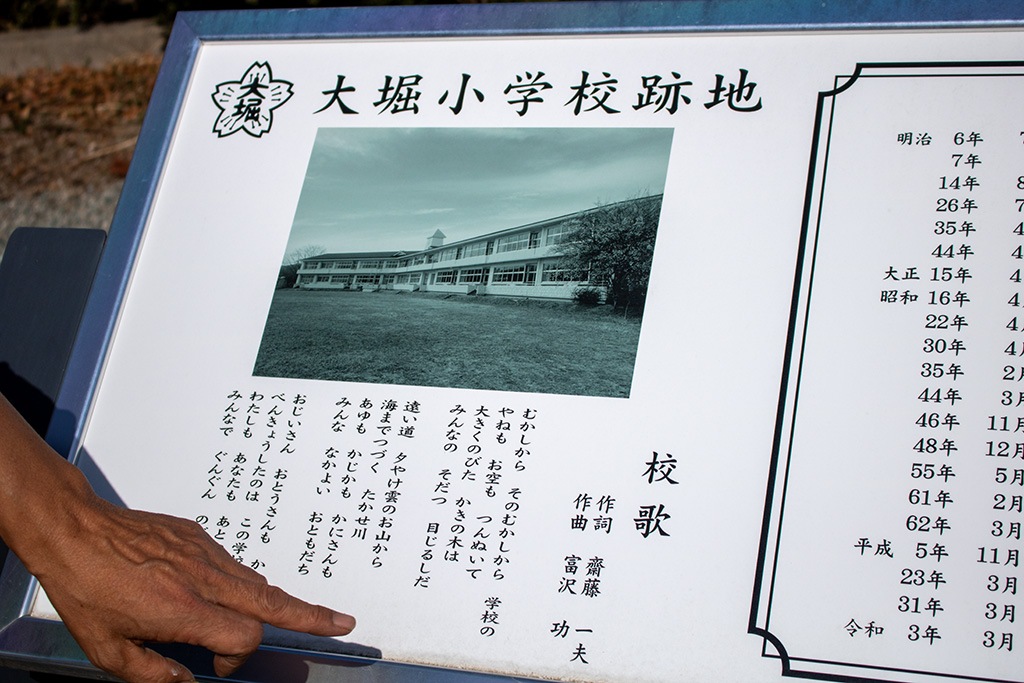 大堀
大堀小学校跡地
校歌
作詞 齋藤 一夫
作曲 富沢 功
むかしから そのむかしから 学校の
やねも お空も つんぬいて
大きくのびた かきの木は
みんなの そだつ 目じるしだ
遠い道 夕やけ雲のお山から
海までつづく たかせ川
あゆも かじかも かにさんも
みんな なかよい おともだち
おじいさん おとうさんも
べんきょうしたのは この学
わたしも あなたも あと
みんなで ぐんぐん の
明治 6年
7年
14年 8
26年 7
35年 4
44年 4
大正 15年 4
昭和 16年 4
22年 4月
30年 4月
35年 2月
44年 3月
46年 11月
48年 12月
55年 5月
61年 2月
62年 3月
平成 5年 11月
23年 3月
31年 3月
令和 3年 3月